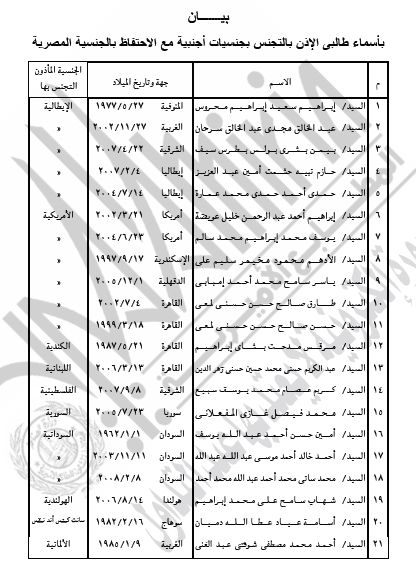 بيـــــــان
بأسماء طالبى الإذن بالتجنس بجنسيات أجنبية مع الاحتفاظ بالجنسية المصرية
م الاسم جهة وتاريخ الميلاد الجنسية المأذون التجنس بها
١ السيد/ إبراهيم سعيد إبراهيم محروس المنوفية ١٩٧٧/٥/٢٧ الإيطالية
٢ السيد/ عبد الخالق مجدى عبد الخالق سرحان الغربية ٢٠٠٢/١١/٢٧ »
٣ السيد/ بيمن بشرى بولس بطرس سيف الشرقية ٢٠٠٧/٤/٢٢ »
٤ السيد/ حازم نبيه حشمت أمين عبد العزيز إيطاليا ٢٠٠٧/٢/٤ »
٥ السيد/ حمدى أحمد حمدى محمد عمارة إيطاليا ٢٠٠٤/٧/١٤ »
٦ السيد/ إبراهيم أحمد عبد الرحمن خليل عريضة أمريكا ٢٠٠٢/٣/٢١ الأمريكية
٧ السيد/ يوسف محمد إبراهيم محمد سالم أمريكا ٢٠٠٤/٦/٢٣ »
٨ السيد/ الأدهم محمود مخيمر سليم على الإسكندرية ١٩٩٧/٩/١٧ »
٩ السيد/ ياسر سامح محمد أحمد إمبابى الدقهلية ٢٠٠٥/١٢/١ »
١٠ السيد/ طارق صالح حسن حسنى لمعى القاهرة ٢٠٠٢/٧/٤ »
١١ السيد/ حسن صالح حسن حسنى لمعى القاهرة ١٩٩٩/٣/١٨ »
١٢ السيد/ مرقس مدحت بشاى إبراهيم القاهرة ١٩٨٧/٥/٢١ الكندية
١٣ السيد/ عبد الكريم حسنى محمد حسين حسنى زهر الدين القاهرة ٢٠٠٦/٣/١٣ اللبنانية
١٤ السيد/ كريم عصام محمد يوسف سبيع الشرقية ٢٠٠٧/٩/٨ الفلسطينية
١٥ السيد/ محمد فيصل غازى المفعلانى سوريا ٢٠٠٥/٧/٢٣ السورية
١٦ السيد/ أمين حسن أحمد عبد الله يوسف السودان ١٩٦٢/١/١ السودانية
١٧ السيد/ أحمد خالد أحمد موسى عبد الله عبد الله السودان ٢٠٠٣/١١/١١ »
١٨ السيد/ محمد ساتى محمد أحمد عبد الله محمد أحمد السودان ٢٠٠٨/٢/٨ »
١٩ السيد/ شهاب سامح على محمد إبراهيم هولندا ٢٠٠٦/٨/١٤ الهولندية
٢٠ السيد/ أسامة عياد عطا الله دميان سوهاج ١٩٨٢/٢/١٦ سانت كيتس أند نيفس
٢١ السيد/ أحمد محمد مصطفى شوقى عبد الغنى الغربية ١٩٨٥/١/٩ الألمانية